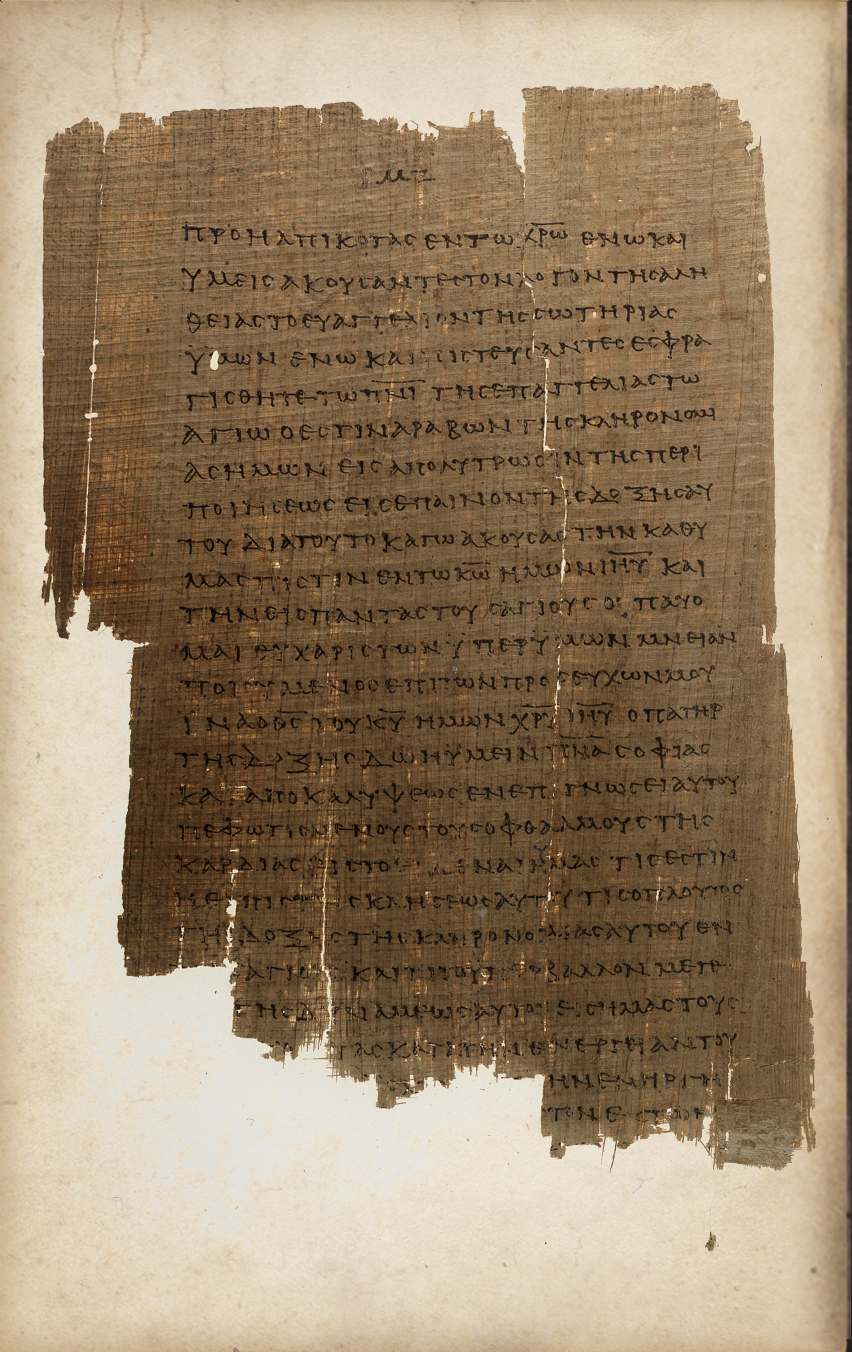 ΠΡΟΗΛΠΙΚΟΤΑΣ ΕΝ ΤΩ ΧΡΩ ΕΝ Ω ΚΑΙ
ΥΜΕΙΣ ΑΚΟΥΣΑΝΤΕΣ ΤΟΝ ΛΟΓΟΝ ΤΗΣ ΑΛΗ
ΘΕΙΑΣ ΤΟ ΕΥΑΓΓΕΛΙΟΝ ΤΗΣ ΣΩΤΗΡΙΑΣ
ΥΜΩΝ ΕΝ Ω ΚΑΙ ΠΙΣΤΕΥΣΑΝΤΕΣ ΕΣΦΡΑ
ΓΙΣΘΗΤΕ ΤΩ ΠΝΙ ΤΗΣ ΕΠΑΓΓΕΛΙΑΣ ΤΩ
ΑΓΙΩ Ο ΕΣΤΙΝ ΑΡΑΒΩΝ ΤΗΣ ΚΛΗΡΟΝΟΜΙ
ΑΣ ΗΜΩΝ ΕΙΣ ΑΠΟΛΥΤΡΩΣΙΝ ΤΗΣ ΠΕΡΙ
ΠΟΙΗΣΕΩΣ ΕΙΣ ΕΠΑΙΝΟΝ ΤΗΣ ΔΟΞΗΣ ΑΥ
ΤΟΥ ΔΙΑ ΤΟΥΤΟ ΚΑΓΩ ΑΚΟΥΣΑΣ ΤΗΝ ΚΑΘ Υ
ΜΑΣ ΠΙΣΤΙΝ ΕΝ ΤΩ ΚΩ ΗΜΩΝ ΙΗΥ ΚΑΙ
ΤΗΝ ΕΙΣ ΠΑΝΤΑΣ ΤΟΥΣ ΑΓΙΟΥΣ ΟΥ ΠΑΥΟ
ΜΑΙ ΕΥΧΑΡΙΣΤΩΝ ΥΠΕΡ ΥΜΩΝ ΜΝΕΙΑΝ
ΠΟΙΟΥΜΕΝΟΣ ΕΠΙ ΤΩΝ ΠΡΟΣΕΥΧΩΝ ΜΟΥ
ΙΝΑ Ο ΘΣ ΤΟΥ ΚΥ ΗΜΩΝ ΧΡΥ ΙΗΥ Ο ΠΑΤΗΡ
ΤΗΣ ΔΟΞΗΣ ΔΩΗ ΥΜΕΙΝ ΠΝΑ ΣΟΦΙΑΣ
ΚΑΙ ΑΠΟΚΑΛΥΨΕΩΣ ΕΝ ΕΠΙΓΝΩΣΕΙ ΑΥΤΟΥ
ΠΕΦΩΤΙΣΜΕΝΟΥΣ ΤΟΥΣ ΟΦΘΑΛΜΟΥΣ ΤΗΣ
ΚΑΡΔΙΑΣ ΕΙΣ ΤΟ ΥΜΑΣ ΤΙΣ ΕΣΤΙΝ
Η ΕΛΠΙΣ ΤΗΣ ΚΛΗΣΕΩΣ ΑΥΤΟΥ ΤΙΣ Ο ΠΛΟΥΤΟΣ
ΤΗΣ ΔΟΞΗΣ ΤΗΣ ΚΛΗΡΟΝΟΜΙΑΣ ΑΥΤΟΥ ΕΝ
ΚΑΙ ΤΙ ΤΟ ΥΠΕΡΒΑΛΛΟΝ ΜΕΓΕ
ΤΗΣ ΔΥΝΑΜΕΩΣ ΑΥΤΟΥ ΕΙΣ ΗΜΑΣ ΤΟΥΣ
ΚΑΤΑ ΤΗΝ ΕΝΕΡΓΕΙΑΝ ΤΟΥ
ΗΝ ΕΝΗΡΓΗ
ΤΟΝ ΕΚ ΤΩΝ